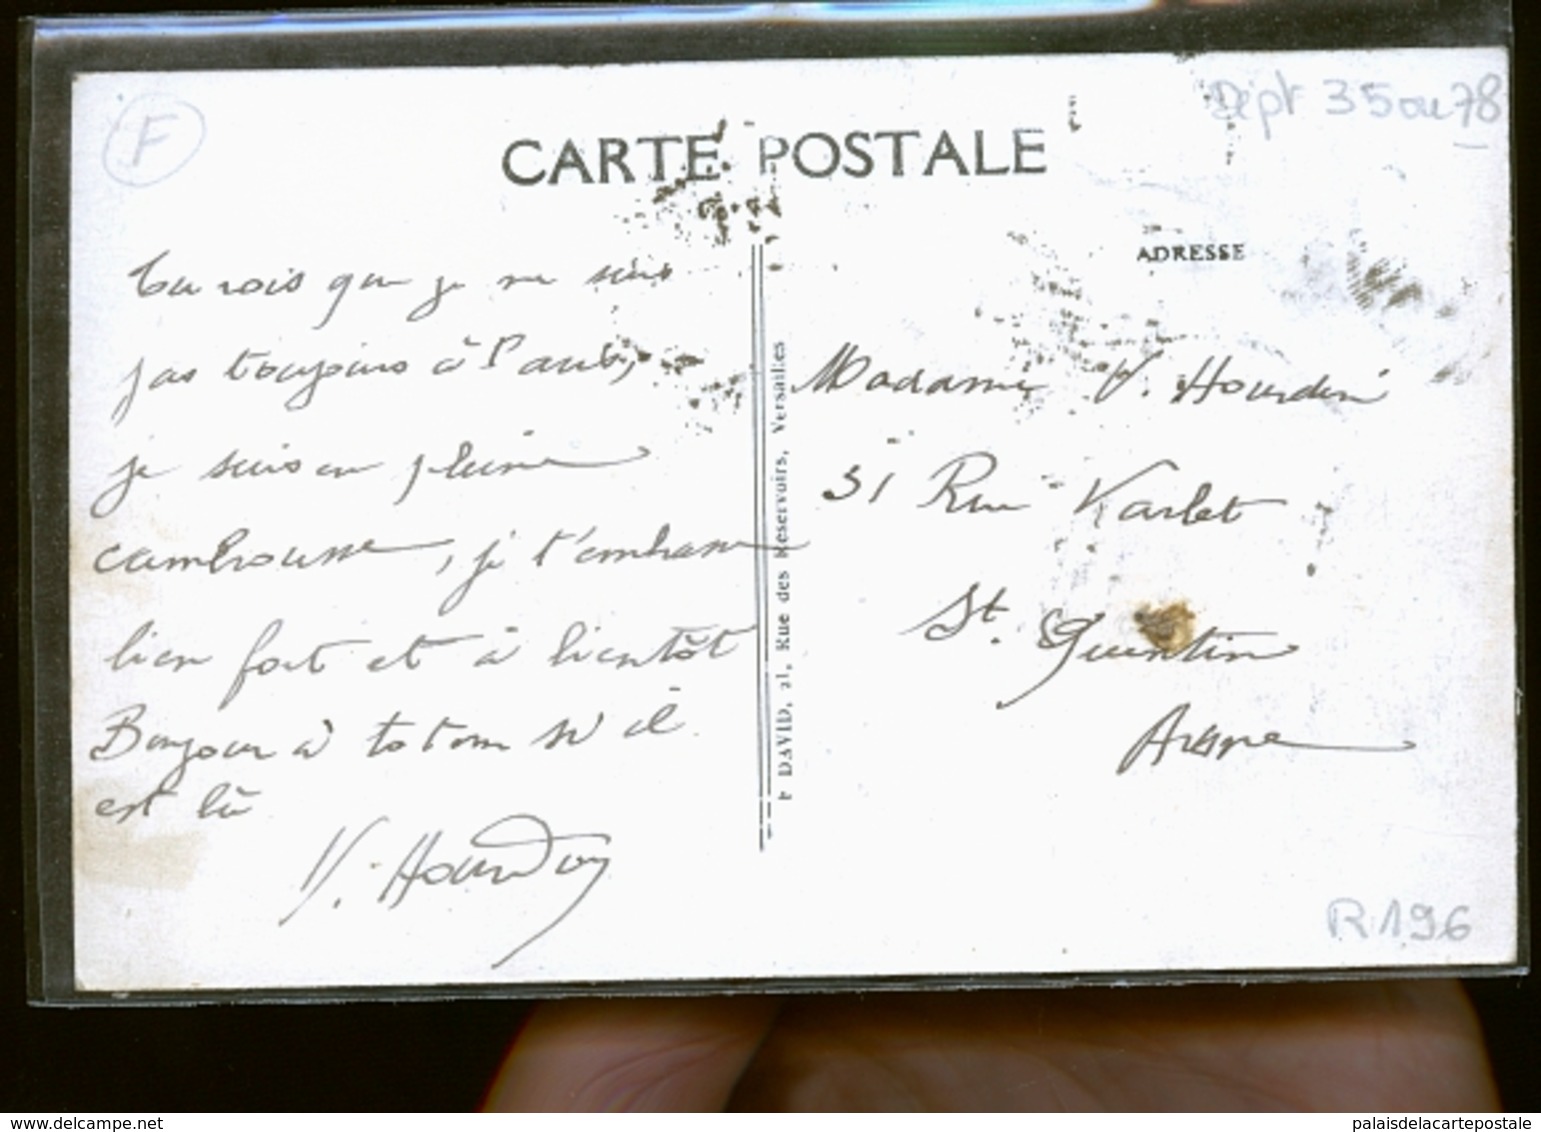 F
Dépt 35 ou 78
CARTE POSTALE
ADRESSE
Tu vois que je ne suis
pas toujours à Paris,
je suis en pleine
cambrousse, je t'embrasse
bien fort et à bientôt
Bonjour à totom s'il
est là
V. Hourdin
DAVID, 21, Rue des Réservoirs, Versailles
Madame V. Hourdin
31 Rue Varlet
St. Quentin
Aisne
R196
www.delcampe.net
palaisdelacartepostale